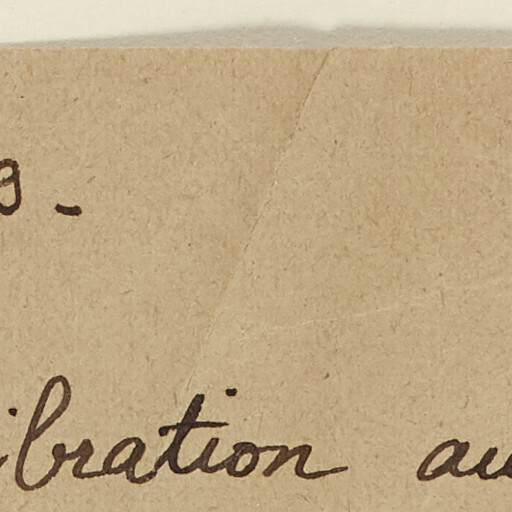 ibration au